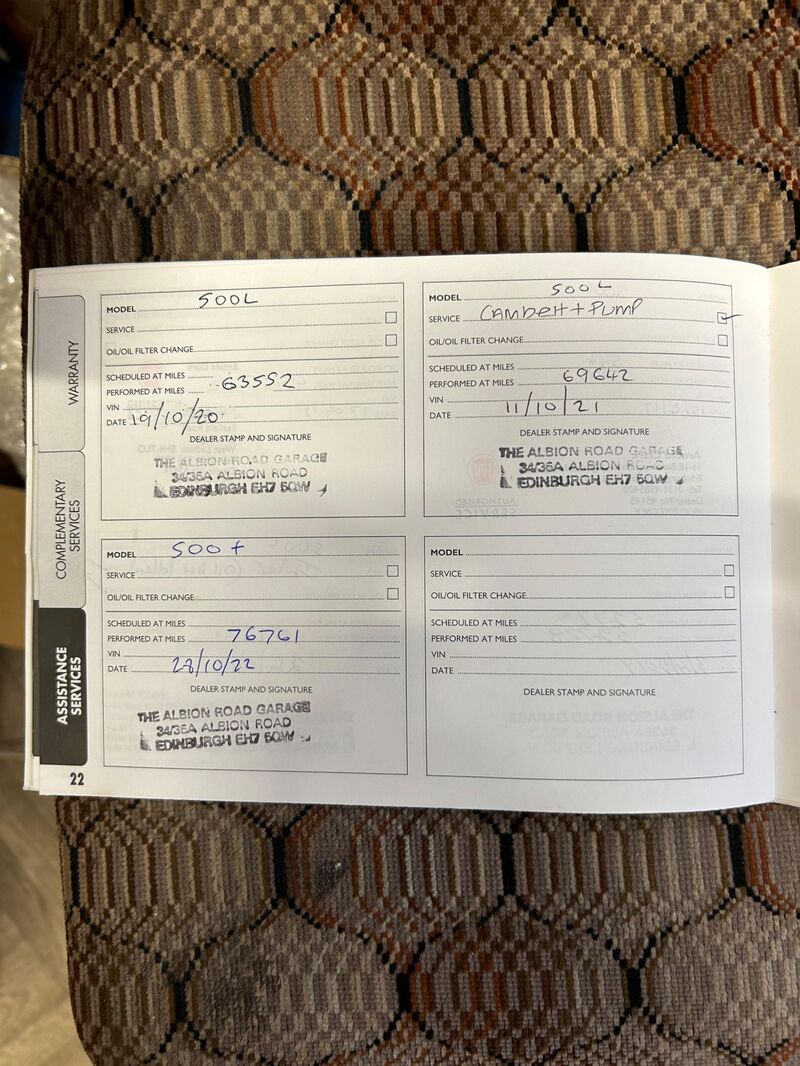 WARRANTY
COMPLEMENTARY
SERVICES
ASSISTANCE
SERVICES
22
MODEL 500L
SERVICE
OIL/OIL FILTER CHANGE
SCHEDULED AT MILES
PERFORMED AT MILES 63552
VIN
DATE 19/10/20
DEALER STAMP AND SIGNATURE
THE ALBION ROAD GARAGE
34/36A ALBION ROAD
EDINBURGH EH7 5QW
MODEL 500L
SERVICE CAMBELT + PUMP
OIL/OIL FILTER CHANGE
SCHEDULED AT MILES
PERFORMED AT MILES 69642
VIN
DATE 11/10/21
DEALER STAMP AND SIGNATURE
THE ALBION ROAD GARAGE
34/36A ALBION ROAD
EDINBURGH EH7 5QW
MODEL 500
SERVICE
OIL/OIL FILTER CHANGE
SCHEDULED AT MILES
PERFORMED AT MILES 76761
VIN
DATE 28/10/22
DEALER STAMP AND SIGNATURE
THE ALBION ROAD GARAGE
34/36A ALBION ROAD
EDINBURGH EH7 5QW
MODEL
SERVICE
OIL/OIL FILTER CHANGE
SCHEDULED AT MILES
PERFORMED AT MILES
VIN
DATE
DEALER STAMP AND SIGNATURE